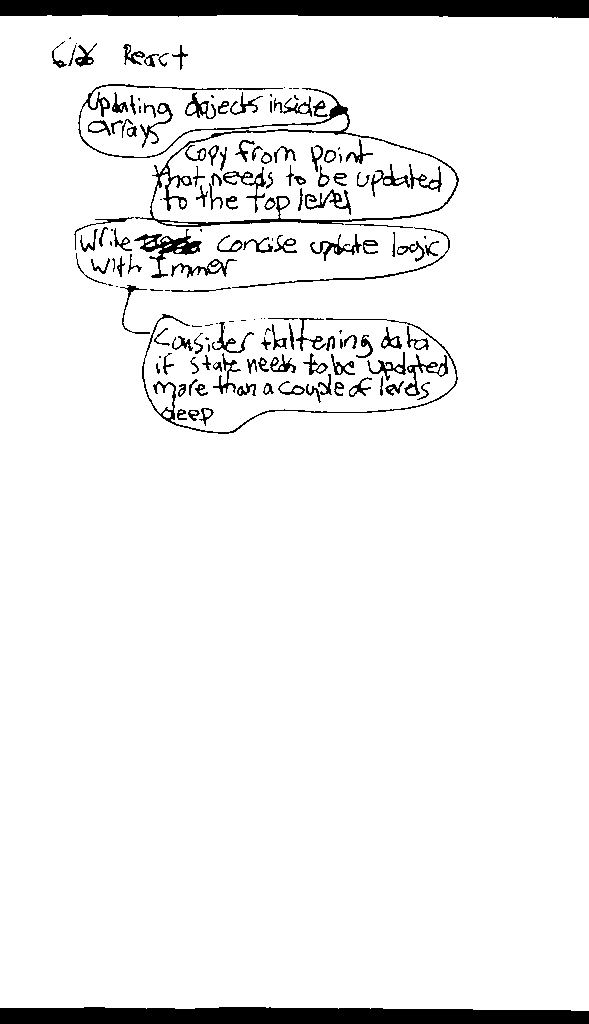 React
Updating objects inside
arrays
Copy from point
that needs to be updated
to the top level
Write concise update logic
with Immer
Consider flattening data
if state needs to be updated
more than a couple of levels
deep